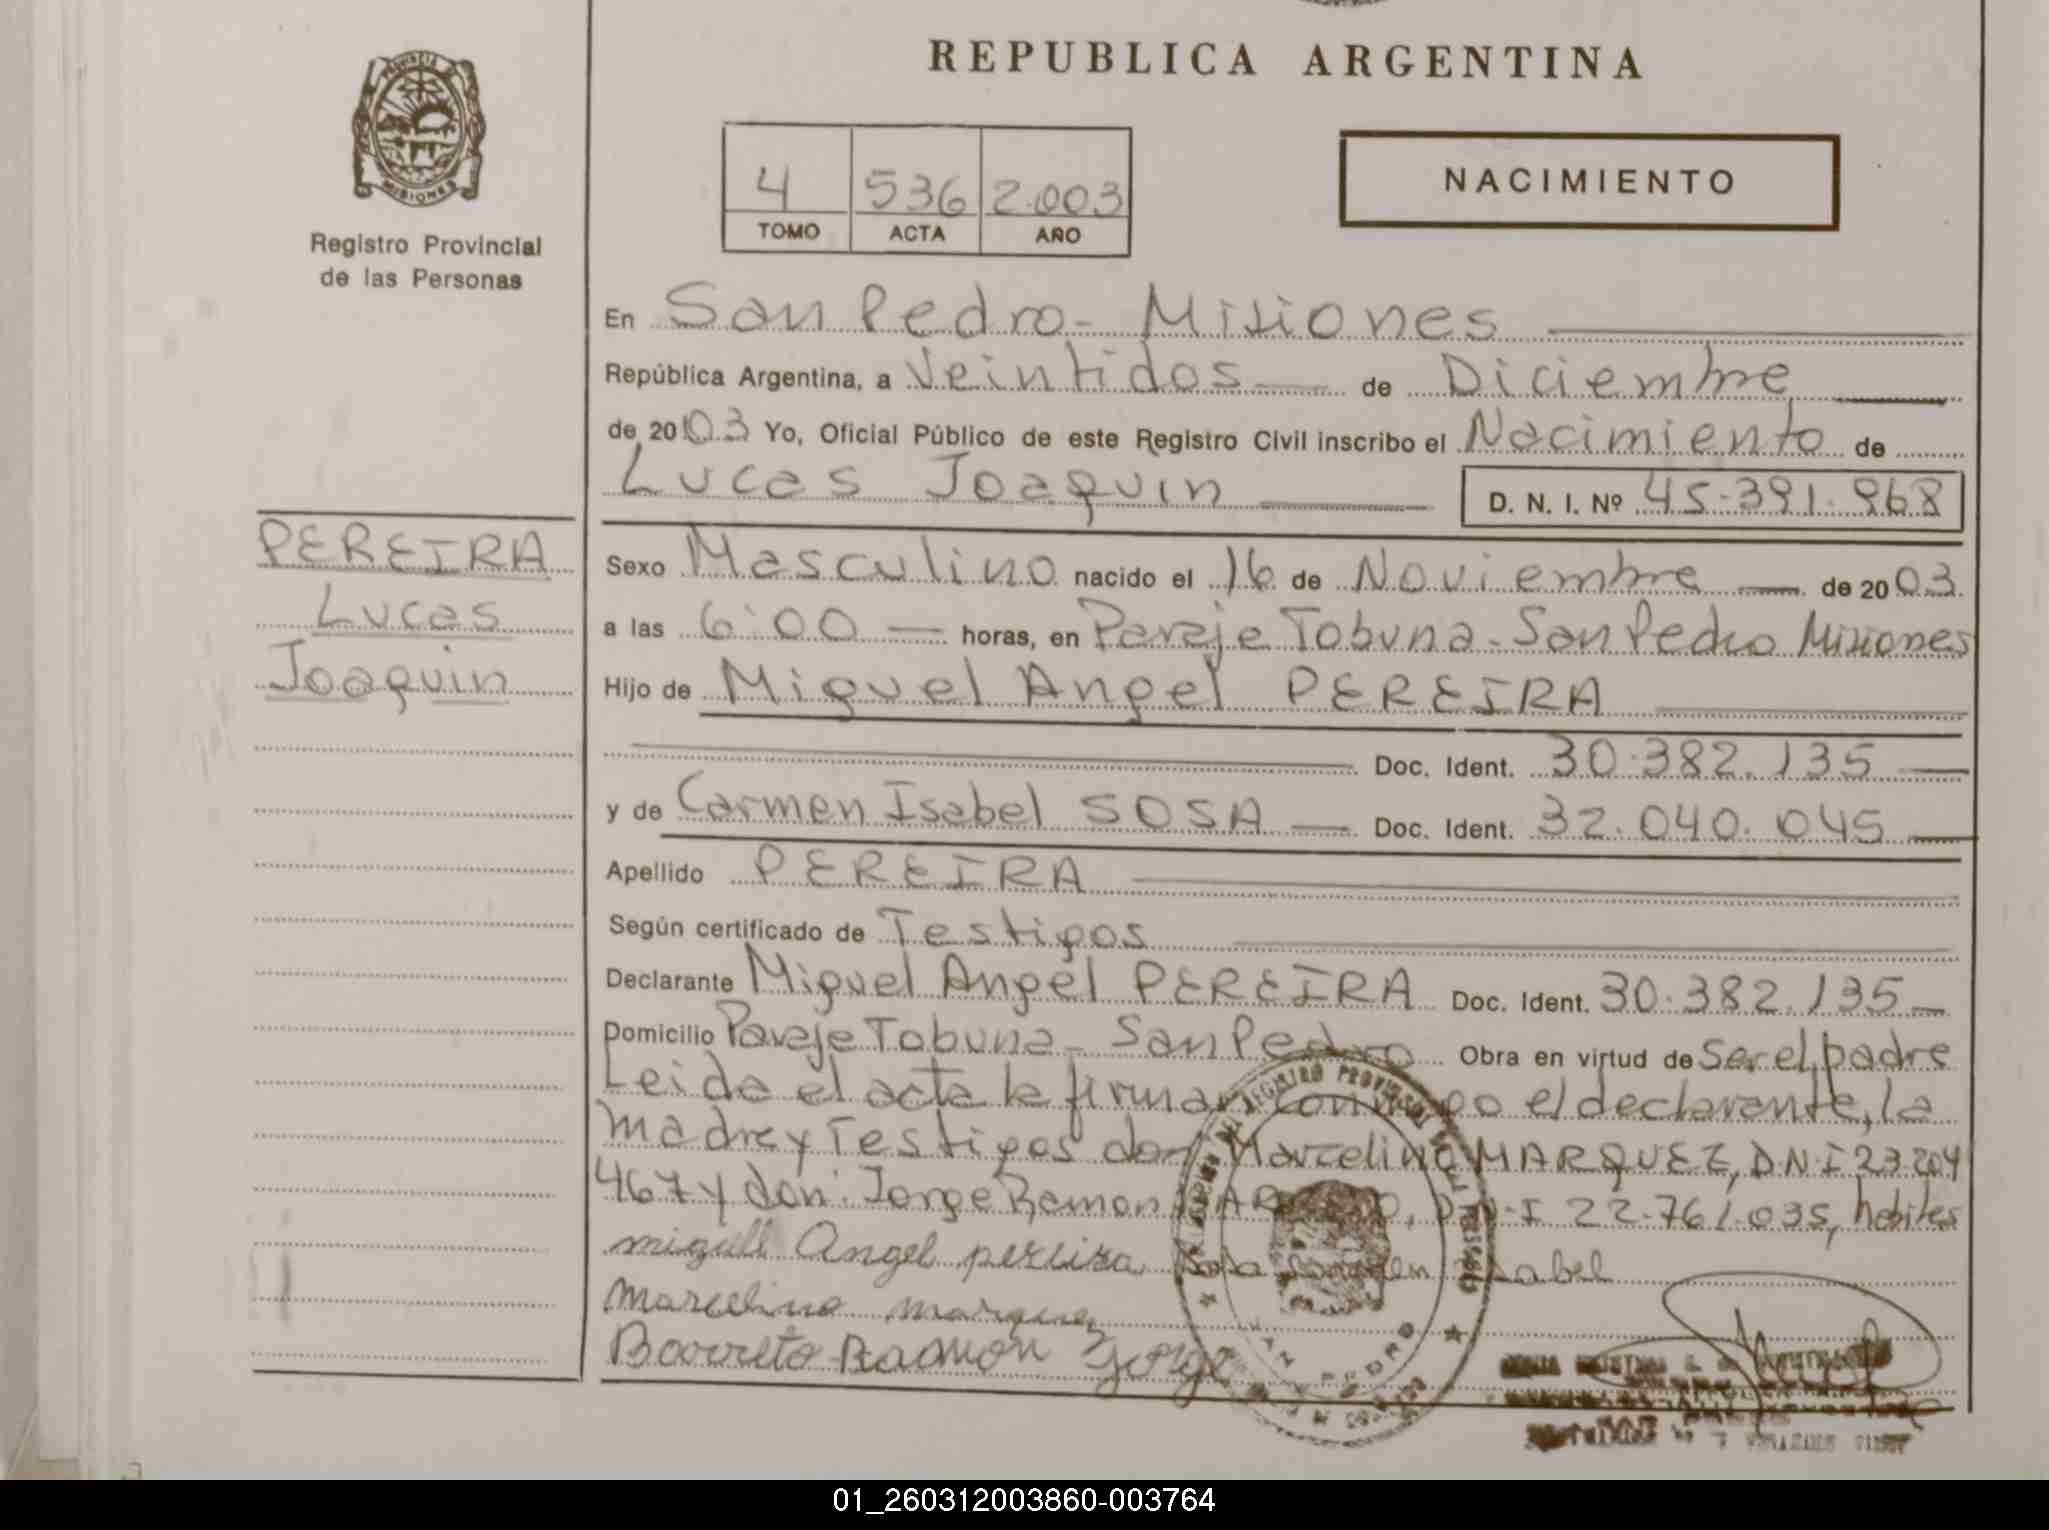 REPUBLICA ARGENTINA
PROVINCIA DE
MISIONES
Registro Provincial
de las Personas
4 536 2.003
TOMO ACTA AÑO
NACIMIENTO
En San Pedro - Misiones
República Argentina, a Veintidos de Diciembre
de 2003 Yo, Oficial Público de este Registro Civil inscribo el Nacimiento de
Lucas Joaquin D. N. I. Nº 45.391.968
PEREIRA
Lucas
Joaquin
Sexo Masculino nacido el 16 de Noviembre de 2003
a las 6:00 horas, en Paraje Tobuna - San Pedro Misiones
Hijo de Miguel Angel PEREIRA
Doc. Ident. 30.382.135
y de Carmen Isabel SOSA Doc. Ident. 32.040.045
Apellido PEREIRA
Según certificado de Testigos
Declarante Miguel Angel PEREIRA Doc. Ident. 30.382.135
Domicilio Paraje Tobuna - San Pedro Obra en virtud de Ser el padre
Leida el acta la firman conmigo el declarante, la
madre y Testigos don Marcelino MARQUEZ, D.N.I 23.204
467 y don: Jorge Ramon D.N.I 22.761.035, habiles
miguel Angel pereira Sosa Carmen Isabel
Marcelino marquez
Barreto Ramón Jorge
SAN PEDRO
01_260312003860-003764